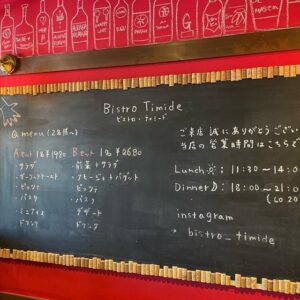 Bistro Timide
ビストロ・ティミード
menu (2名様~)
Aセット 1名¥1980
・サラダ
・ピッツァ
・パスタ
・ミニアイス
・ドリンク
Bセット 1名¥2680
・前菜+サラダ
・ピッツァ
・パスタ
・デザート
・ドリンク
ご来店 誠にありがとうござい
当店の営業時間はこちらで
Lunch : 11:30 ~ 14:0
Dinner : 18:00 ~ 21:0
(LO 20
instagram
bistro_timide